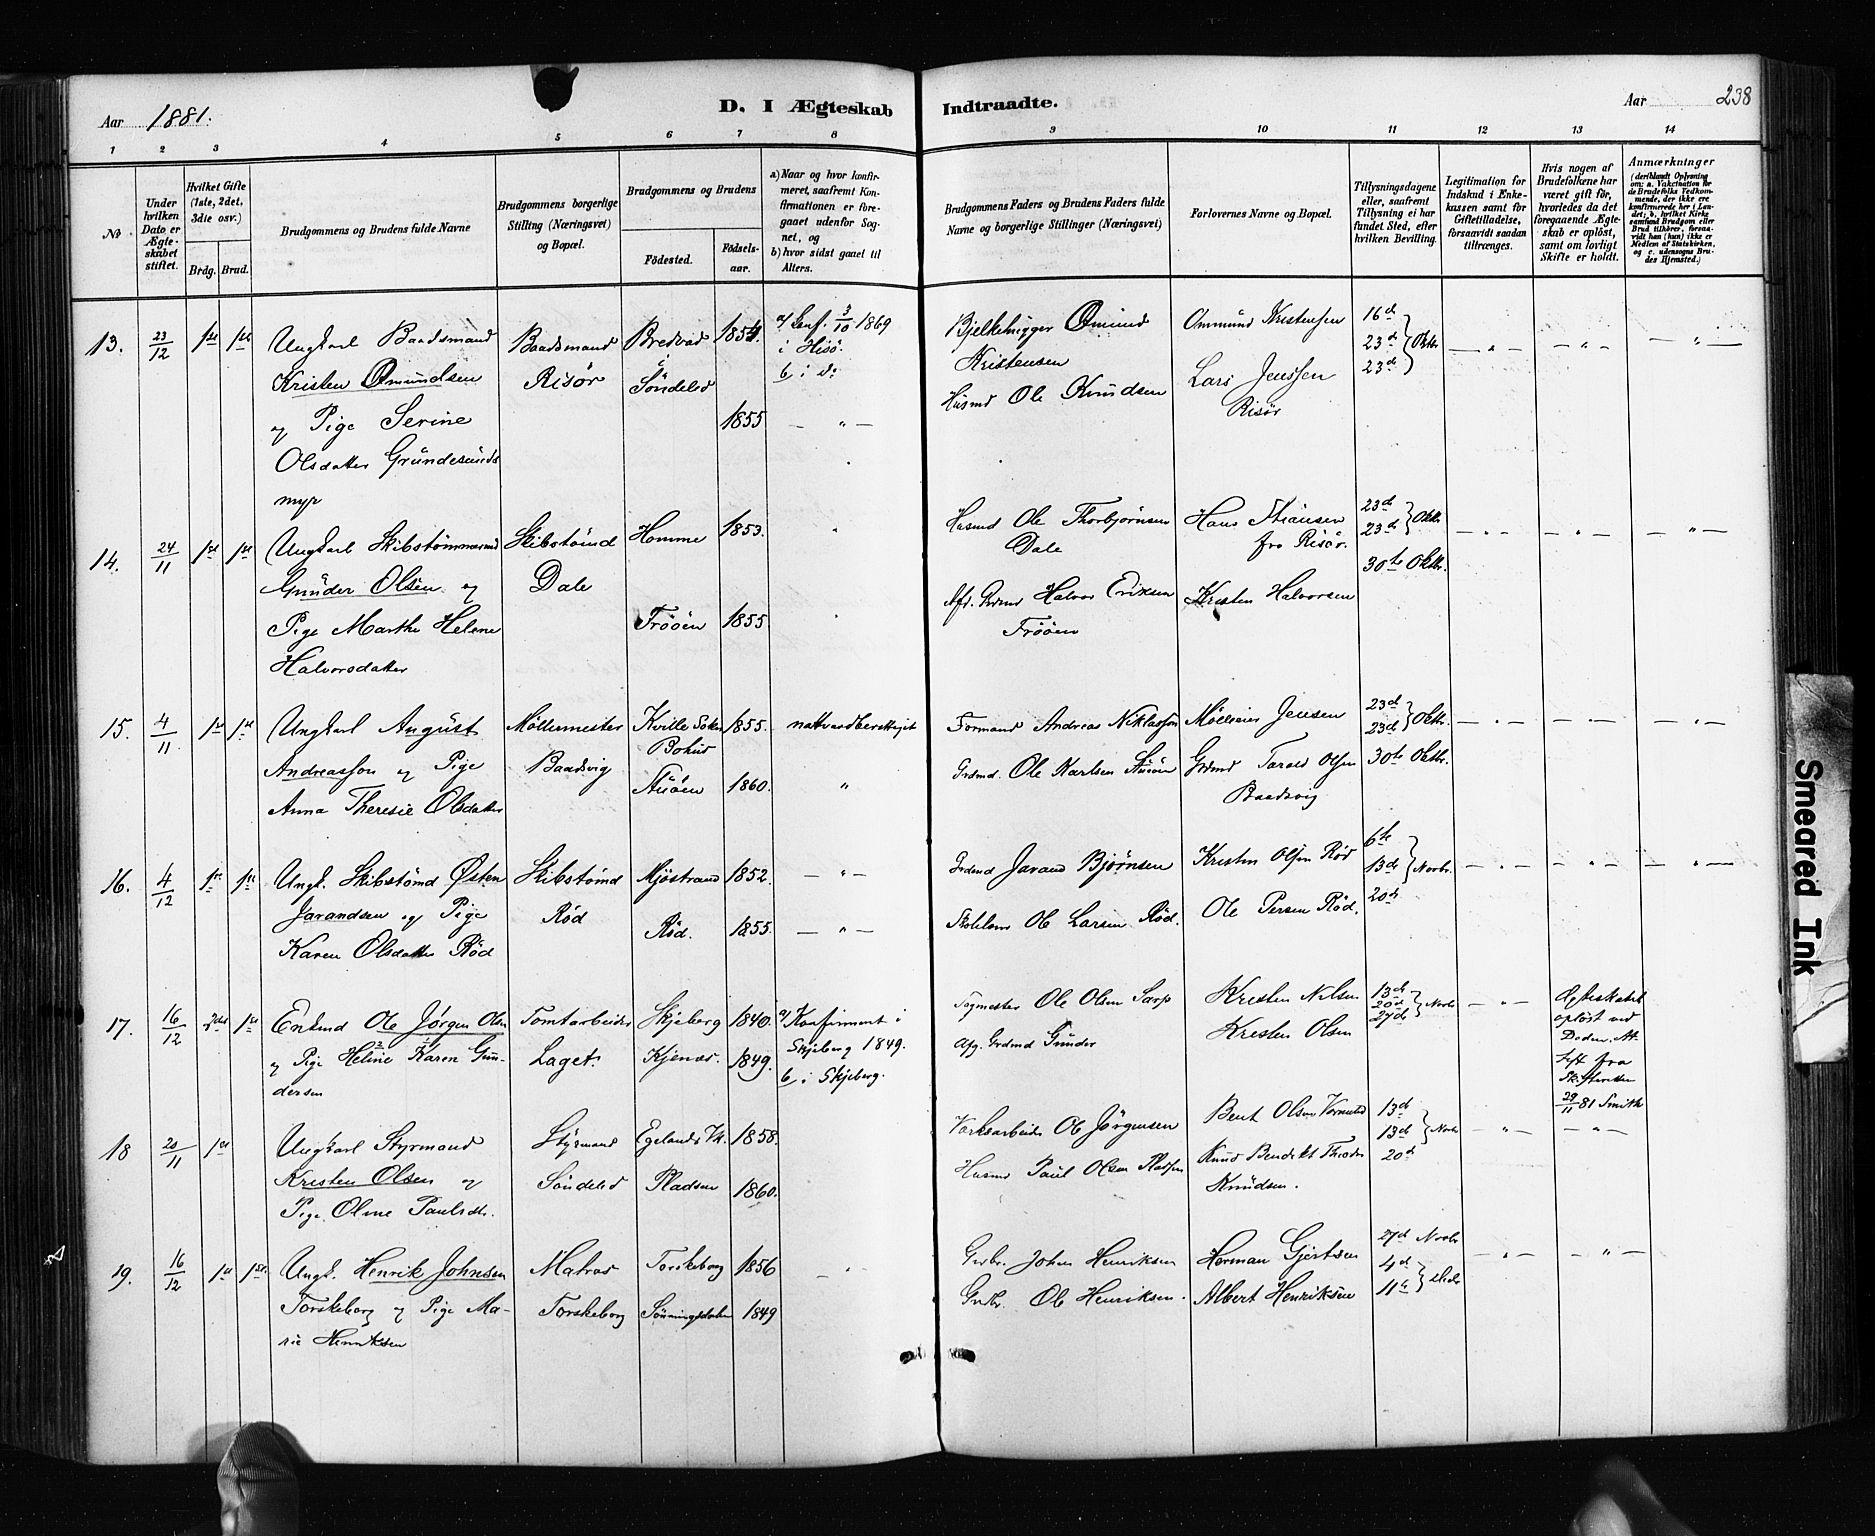 Aar 1881.
D. I Ægteskab Indtraadte.
Aar 238
1 2 3 4 5 6 7 8 9 10 11 12 13 14
No
Under hvilken Dato er Ægteskabet stiftet.
Hvilket Gifte (1ste, 2det, 3die osv.)
Brdg. Brud.
Brudgommens og Brudens fulde Navne
Brudgommens borgerlige Stilling (Næringsvei) og Bopæl.
Brudgommens og Brudens
Födested.
Födsels-aar.
a) Naar og hvor konfirmeret, saafremt Konfirmationen er foregaaet udenfor Sognet, og
b) hvor sidst gaaet til Alters.
Brudgommens Faders og Brudens Faders fulde Navne og borgerlige Stillinger (Næringsvei)
Forlovernes Navne og Bopæl.
Tillysningsdagene eller, saafremt Tillysning ei har fundet Sted, efter hvilken Bevilling.
Legitimation for Indskud i Enkekassen samt for Giftetilladelse, forsaavidt saadan tiltrænges.
Hvis nogen af Brudefolkene har været gift för, hvorledes da det foregaaende Ægteskab er oplöst, samt om lovligt Skifte er holdt.
Anmærkninger (deriblandt Oplysning om: a. Vakcination for de Brudefolks Vedkommende, der ikke ere konfirmerede her i Landet; b. hvilket Kirkesamfund Brudgom eller Brud tilhörer, forsaavidt han (hun) ikke er Medlem af Statskirken, og c. udensogns Brudes Hjemsted.)
13. 23/12 1ste 1ste Ungkarl Baadsmand Baadsmand Bredvad 1854. a/ Conf. 3/10 1869
i Hisö.
Kristen Omundsen Risör Söndeled b/ i do
og Pige Serine 1855 — " —
Olsdatter Grundesunds
myr
Bjelkehugger Omund Ommund Kristensen 16d
Kristensen 23d } Oktbr
Husmd Ole Knudsen Lars Jenssen 23d
Risör
14. 24/11 1ste 1ste Ungkarl Skibstømmermd Skibstømd Homme 1853. "
Gunder Olsen og Dale
Pige Marthe Helene Frööen 1855 "
Halvorsdatter
Husmd Ole Thorbjørnsen Hans 23d
Dale fra Risör. 23d } Oktbr
30te Oktbr.
Halvor Eriksen Kristen Halvorsen
Frööen
15. 4/11 1ste 1ste Ungkarl August Möllemester Kville Sokn 1855. nattvardberettiget
Bohus
Andreassson og Pige Baadsvig
Anna Theresie Olsdatter Stuöen 1860. "
Formand Andreas Niklassön Jensen 23d
23d } Oktbr.
Grdmd. Ole Karlsen Stuöen Grdmd Tarald Olsen 30te Oktbr.
Baadsvig
16. 4/12 1ste 1ste Ungk. Skibstömd Østen Skibstömd Mjöstrand 1852. — " —
Jarandsen og Pige Röd Röd. 1855. — " —
Karen Olsdatter Röd
Grdmd Jarand Bjørnsen Kristen Olsen Röd 6te
13d } Novbr.
Ole Larsen Röd. Ole Persen Röd. 20de
17. 16/12 2det 1ste Enkemd Ole Jørgen Olsen Tomtarbeider Skjeberg 1840. a/ Konfirmert i
Skjeberg 1849.
og Pige Heline Karen Gun- Laget. Kjenæs. 1849. b/ i Skjeberg.
dersen
Ole Olsen Sarp Kristen Nilsen 13de
20d } Novbr
27d
Afg. Grdmd Gunder Kristen Olsen
Ægteskabet
oplöst ved
Döden. Att.
Skft fra
29/11 81 Smith
18 20/11 1ste Ungkarl Styrmand Styrmand Egelands Vk. 1858.
Kristen Olsen og Söndeled Pladsen 1860.
Pige Oline Paulsdtr.
Værksarbeider Ole Jørgensen Bent Olsen 13d
13d } Novbr
Husmd Paul Olsen Pladsen Knud Bendikt 20d
Knudsen.
19. 16/12 1ste 1ste Ungk. Henrik Johnsen Matros Torskeberg 1856 — " —
Torskeberg og Pige Ma- Torskeberg Sönningsdalen 1849
rie Henriksen
Grdbr. John Henriksen Herman Gjertsen 27d Novbr
4d
Grdbr. Ole Henriksen. Albert Henriksen 11te } Decbr
Smeared Ink